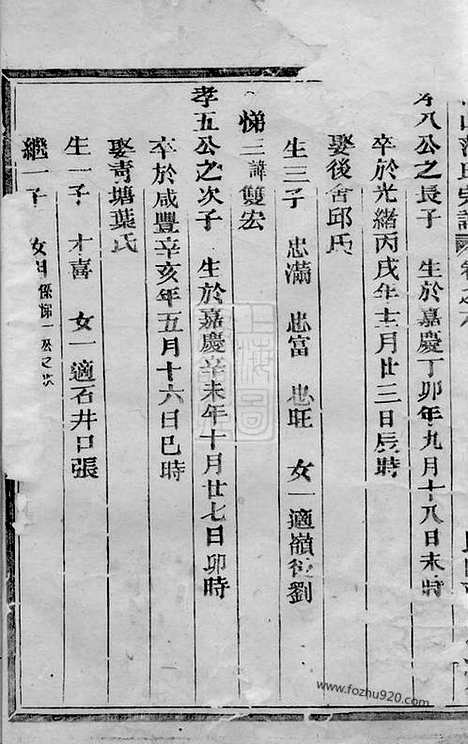 八公之長子 生於嘉慶丁卯年九月十八日未時
卒於光緒丙戌年十二月廿三日辰時
娶後舍邱氏
生三子 忠滿 忠富 忠旺 女一適嶺後劉
悌三諱雙宏
孝五公之次子 生於嘉慶辛未年十月廿七日卯時
卒於咸豐辛亥年五月十六日巳時
娶寄塘葉氏
生一子 才喜 女一適石井口張
繼一子 係悌一公之次
www.fozhu920.com